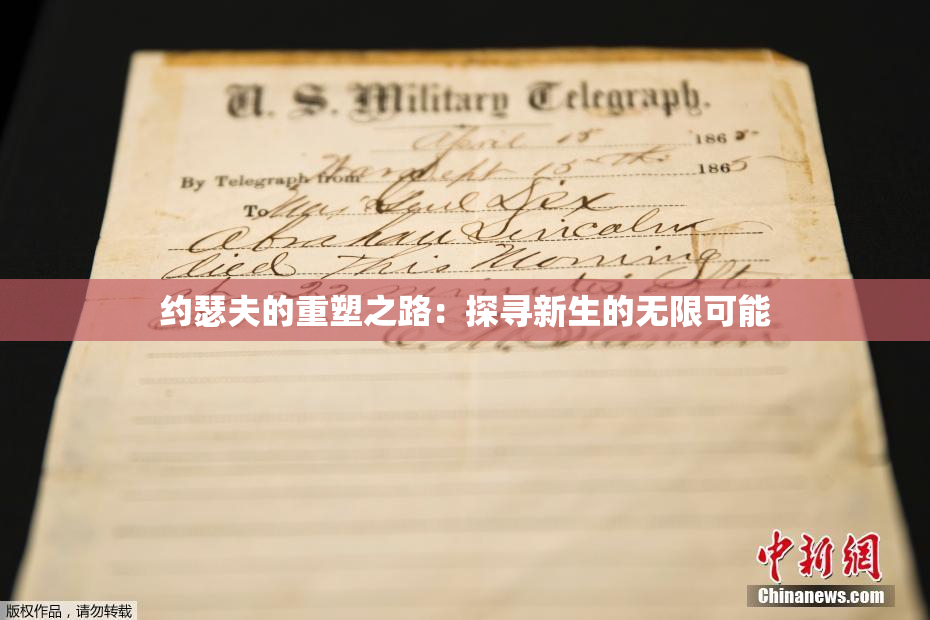 U. S. Military Telegraph.
April 15 1865
By Telegraph from War Dept 15th 1865
To Maj Genl Dix
Abraham Lincoln
died This Morning
at 22 minutes after
约瑟夫的重塑之路：探寻新生的无限可能
中新网
Chinanews.com
版权作品，请勿转载